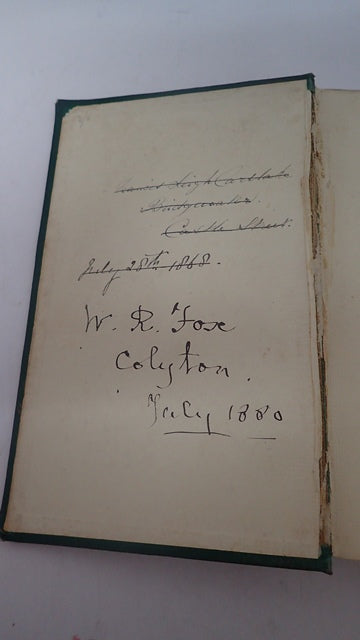 Leigh
Bridgwater.
Castle Street.
July 28th 1868.
W. R. Fox
Colyton.
July 1880